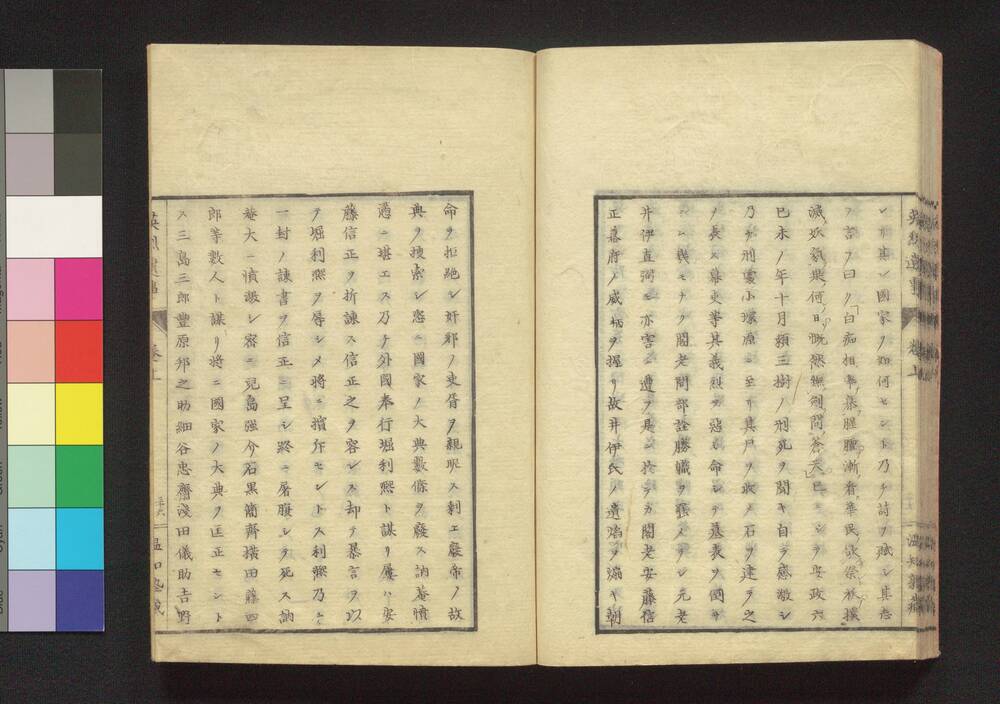 シ其レ國家ノ如何セント乃チ詩ヲ賦シ其志
ヲ言フ曰ク「白痴相率集腥羶漸看華民
滅妖氣是何日慨然無劍問蒼天」已ニシテ安政六
己未ノ年十月頼三樹ノ刑死ヲ聞キ自ラ感激シ
乃チ刑處小塚原ニ至リ其尸ヲ收メ石ヲ建テ之
ノ長ス幕吏等其義烈ヲ惡ミ命シテ墓表ヲ倒サ
シム幾モナク閣老間部詮勝職ヲ褫ハレ元老
井伊直弼モ亦害ニ遭フ是ニ於テカ閣老安藤信
正幕府ノ威柄ヲ握リ故井伊氏ノ遺焰ヲ煽キ朝
命ヲ拒絶シ奸邪ノ吏胥ヲ親昵ス剩エ廢帝ノ故
典ヲ捜索シ恣ニ國家ノ大典數條ヲ廢ス訥菴憤
懣ニ堪エス乃チ外國奉行堀利熙ト謀リ屢ハ安
藤信正ヲ折諫ス信正之ヲ容レス却テ暴言ヲ以
テ堀利熙ヲ辱シメ將ニ擯斥セントス利熙乃チ
一封ノ諫書ヲ信正ニ呈シ終ニ屠腹シテ死ス訥
菴大ニ憤激シ密ニ兒島強介石黒簡齋横田藤四
郎等數人ト謀リ將ニ國家ノ大典ヲ匡正セント
ス三島三郎豐原邦之助細谷忠齋淺田儀助吉野